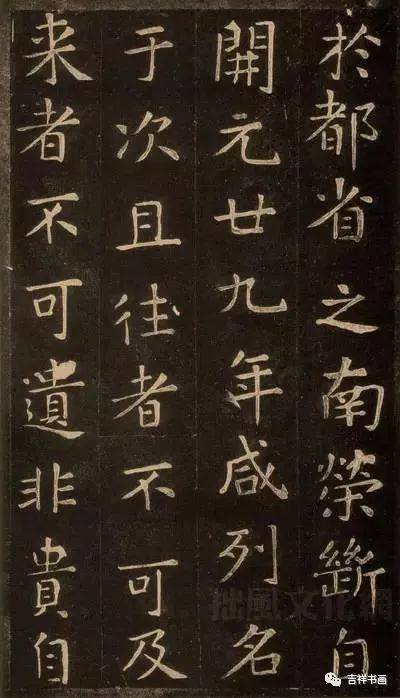 於都省之南榮斷自
開元廿九年咸列名
于次且往者不可及
来者不可遺非貴自
拙風文化網
吉祥书画